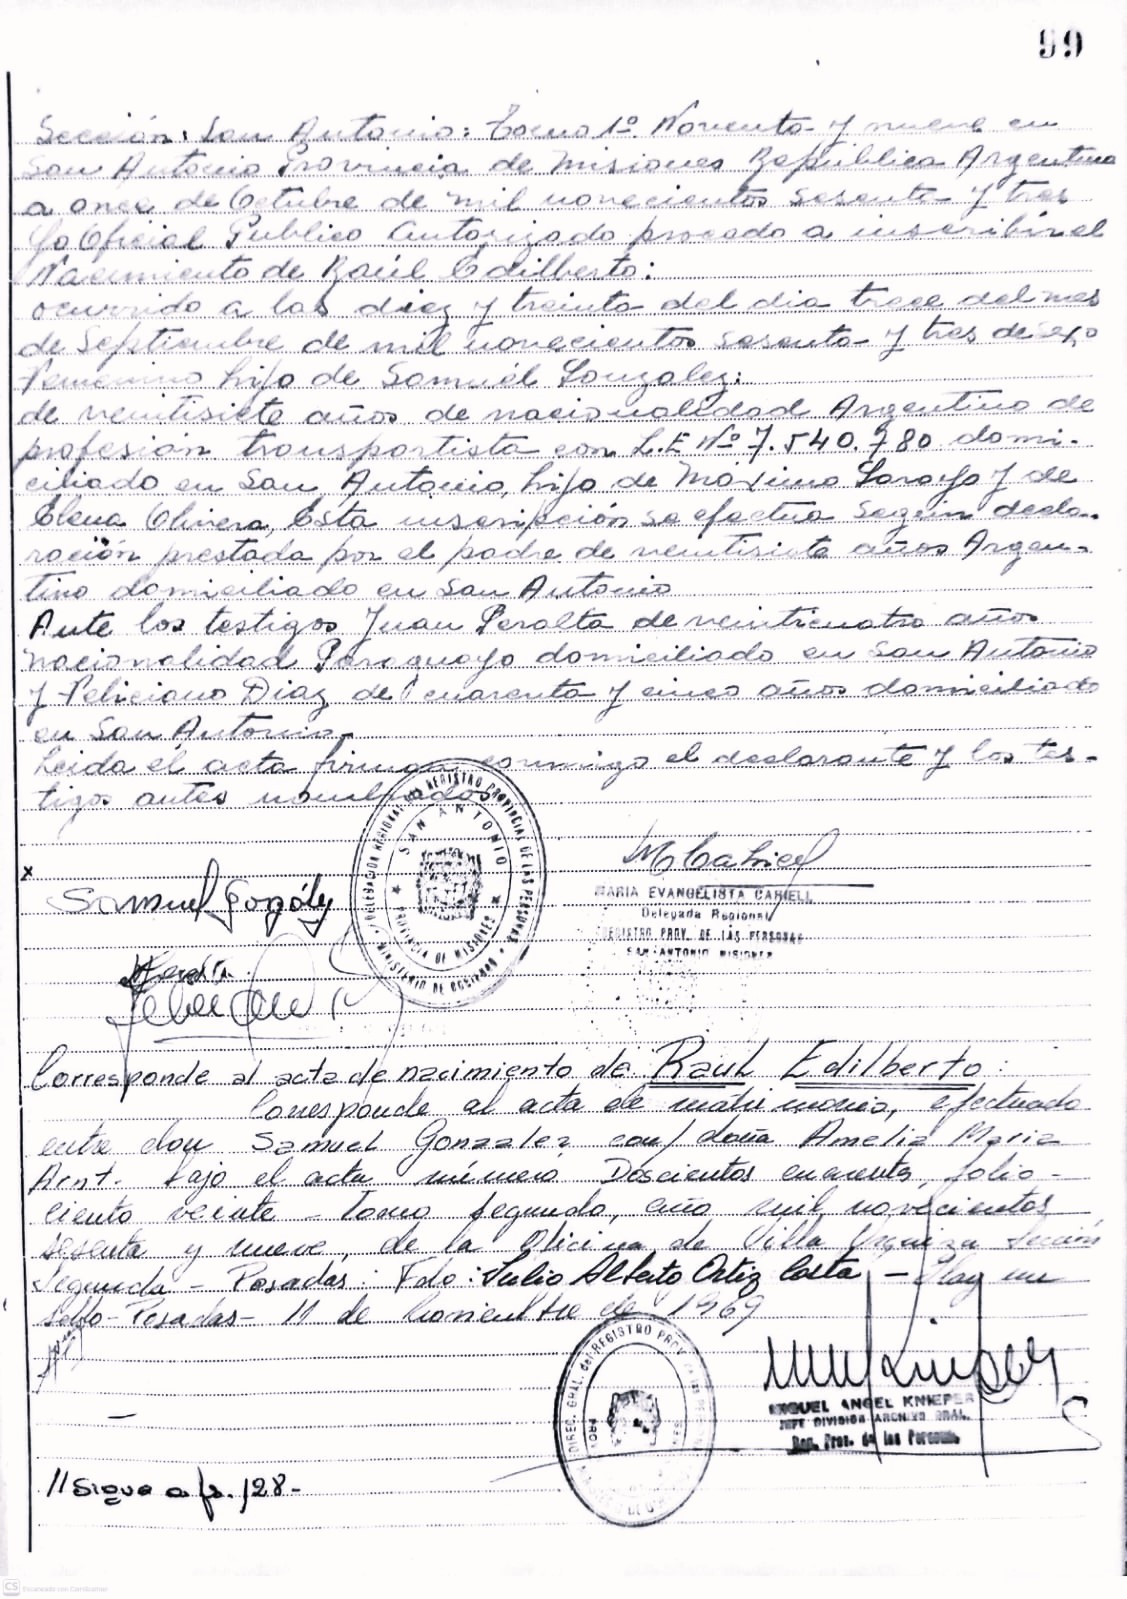 99
Sección: San Antonio: Tomo 1º Noventa y nueve en
San Antonio Provincia de Misiones República Argentina
a once de Octubre de mil novecientos sesenta y tres
Yo Oficial Publico Autorizado procedo a inscribir el
Nacimiento de Raúl Edilberto:
ocurrido a las diez y treinta del dia trece del mes
de Septiembre de mil novecientos sesenta y tres de sexo
Femenino hijo de Samuel Gonzalez:
de veintisiete años de nacionalidad Argentino de
profesión transportista con L.E Nº 7.540.780 domi-
ciliado en San Antonio, hijo de Máximo y de
Elena Olivera, Esta inscripción se efectua segun decla-
ración prestada por el padre de veintisiete años Argen-
tino domiciliado en San Antonio
Ante los testigos Juan Peralta de veinticuatro años
nacionalidad Paraguayo domiciliado en San Antonio
y Feliciano Diaz de cuarenta y cinco años domiciliado
en San Antonio.-
Leida el acta firman conmigo el declarante y los tes-
tigos antes nombrados
DELEGACION REGIONAL REGISTRO PROVINCIAL DE LAS PERSONAS
SAN ANTONIO
PROVINCIA DE MISIONES
MINISTERIO DE GOBIERNO
x
Samuel Gonzalez
MARIA EVANGELISTA CARIELL
Delegada Regional
REGISTRO PROV. DE LAS PERSONAS
SAN ANTONIO MISIONES
Corresponde al acta de nacimiento de Raul Edilberto:
Corresponde al acta de matrimonio, efectuado
entre don Samuel Gonzalez con/ doña Amelia Maria
Arnt. bajo el acta número Doscientos cuarenta, folio-
ciento veinte - Tomo segundo, año mil novecientos
sesenta y nueve, de la Oficina de Villa Urquiza Sección
Segunda - Posadas: Fdo: Julio Alberto Ortiz Costa - Hay un
sello - Posadas - 11 de Noviembre de 1969
DIREC. GRAL. del REGISTRO PROV.
MIGUEL ANGEL KNIEPER
JEFE DIVISION ARCHIVO GRAL.
Reg. Prov. de las Personas
//Sigue a fs. 128-
CS Escaneado con CamScanner